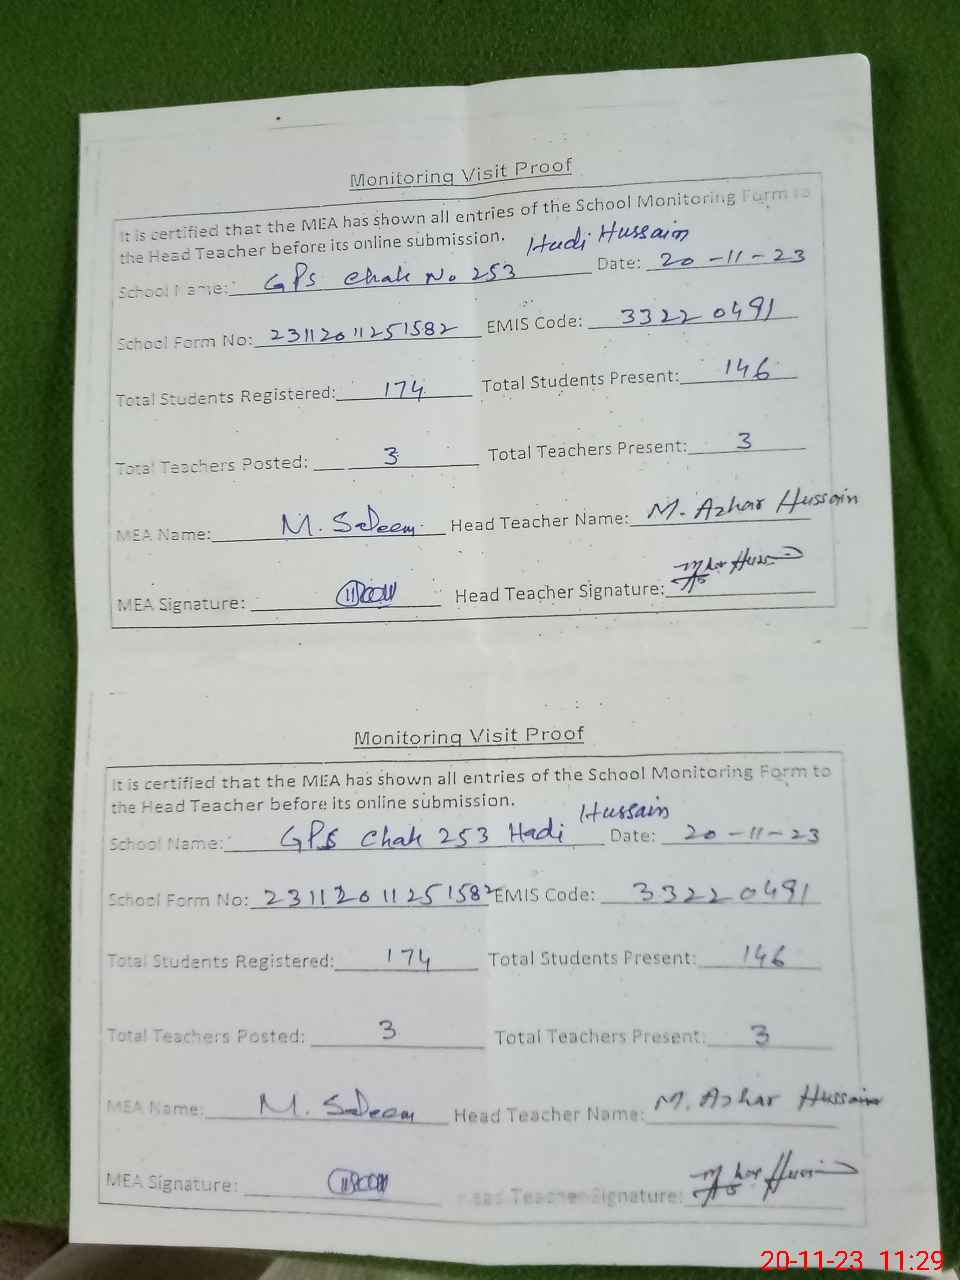 Monitoring Visit Proof
It is certified that the MEA has shown all entries of the School Monitoring Form to
the Head Teacher before its online submission.
School Name: GPS Chak No 253 Hadi Hussain Date: 20-11-23
School Form No: 23112011251582 EMIS Code: 33220491
Total Students Registered: 174 Total Students Present: 146
Total Teachers Posted: 3 Total Teachers Present: 3
MEA Name: M. Saleem Head Teacher Name: M. Azhar Hussain
MEA Signature: Head Teacher Signature:
Monitoring Visit Proof
It is certified that the MEA has shown all entries of the School Monitoring Form to
the Head Teacher before its online submission.
School Name: GPS Chak 253 Hadi Hussain Date: 20-11-23
School Form No: 23112011251582 EMIS Code: 33220491
Total Students Registered: 174 Total Students Present: 146
Total Teachers Posted: 3 Total Teachers Present: 3
MEA Name: M. Saleem Head Teacher Name: M. Azhar Hussain
MEA Signature: Head Teacher Signature:
20-11-23 11:29